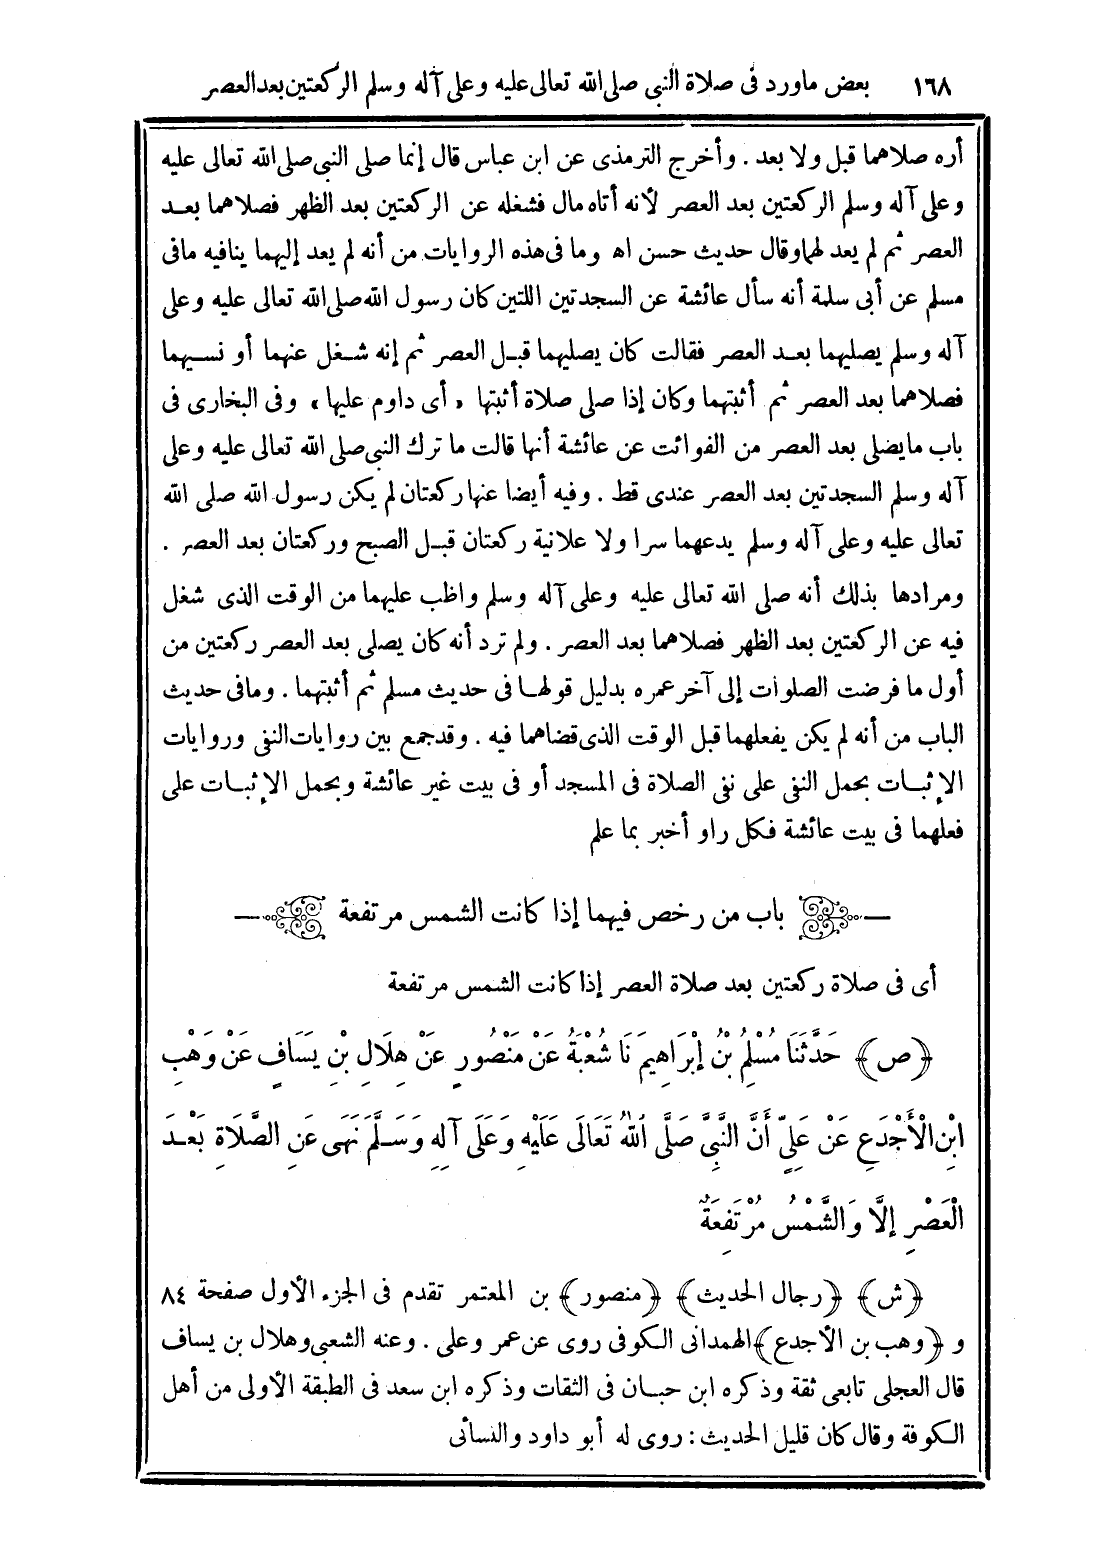 ١٦٨ بعض ماورد فى صلاة النبى صلى الله تعالى عليه وعلى آله وسلم الركعتين بعد العصر
أره صلاهما قبل ولا بعد . وأخرج الترمذى عن ابن عباس قال إنما صلى النبى صلى الله تعالى عليه
وعلى آله وسلم الركعتين بعد العصر لأنه أتاه مال فشغله عن الركعتين بعد الظهر فصلاهما بعد
العصر ثم لم يعد لهما وقال حديث حسن اه وما فى هذه الروايات من أنه لم يعد إليهما ينافيه مافى
مسلم عن أبى سلمة أنه سأل عائشة عن السجدتين اللتين كان رسول الله صلى الله تعالى عليه وعلى
آله وسلم يصليهما بعد العصر فقالت كان يصليهما قبل العصر ثم إنه شغل عنهما أو نسيهما
فصلاهما بعد العصر ثم أثبتهما وكان إذا صلى صلاة أثبتها « أى داوم عليها » وفى البخارى فى
باب مايصلى بعد العصر من الفوائت عن عائشة أنها قالت ما ترك النبى صلى الله تعالى عليه وعلى
آله وسلم السجدتين بعد العصر عندى قط . وفيه أيضا عنها ركعتان لم يكن رسول الله صلى الله
تعالى عليه وعلى آله وسلم يدعهما سرا ولا علانية ركعتان قبل الصبح وركعتان بعد العصر .
ومرادها بذلك أنه صلى الله تعالى عليه وعلى آله وسلم واظب عليهما من الوقت الذى شغل
فيه عن الركعتين بعد الظهر فصلاهما بعد العصر . ولم ترد أنه كان يصلى بعد العصر ركعتين من
أول ما فرضت الصلوات إلى آخر عمره بدليل قولها فى حديث مسلم ثم أثبتهما . ومافى حديث
الباب من أنه لم يكن يفعلهما قبل الوقت الذى قضاهما فيه . وقد جمع بين روايات النفى وروايات
الإثبات بحمل النفى على نفى الصلاة فى المسجد أو فى بيت غير عائشة وبحمل الإثبات على
فعلهما فى بيت عائشة فكل راو أخبر بما علم
باب من رخص فيهما إذا كانت الشمس مرتفعة
أى فى صلاة ركعتين بعد صلاة العصر إذا كانت الشمس مرتفعة
﴿ص﴾ حَدَّثَنَا مُسْلِمُ بْنُ إِبْرَاهِيمَ نَا شُعْبَةُ عَنْ مَنْصُورٍ عَنْ هِلَالِ بْنِ يَسَافٍ عَنْ وَهْبِ
ابْنِ الْأَجْدَعِ عَنْ عَلِيٍّ أَنَّ النَّبِىَّ صَلَّى اللهُ تَعَالَى عَلَيْهِ وَعَلَى آلِهِ وَسَلَّمَ نَهَى عَنِ الصَّلَاةِ بَعْدَ
الْعَصْرِ إِلَّا وَالشَّمْسُ مُرْتَفِعَةٌ
﴿ش﴾ ﴿رجال الحديث﴾ ﴿منصور﴾ بن المعتمر تقدم فى الجزء الأول صفحة ٨٤
و﴿وهب بن الأجدع﴾ الهمدانى الكوفى روى عن عمر وعلى . وعنه الشعبى وهلال بن يساف
قال العجلى تابعى ثقة وذكره ابن حبان فى الثقات وذكره ابن سعد فى الطبقة الأولى من أهل
الكوفة وقال كان قليل الحديث : روى له أبو داود والنسائى